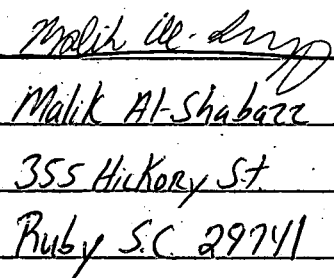 Malik Al-Shabazz
355 Hickory St.
Ruby S.C 29741